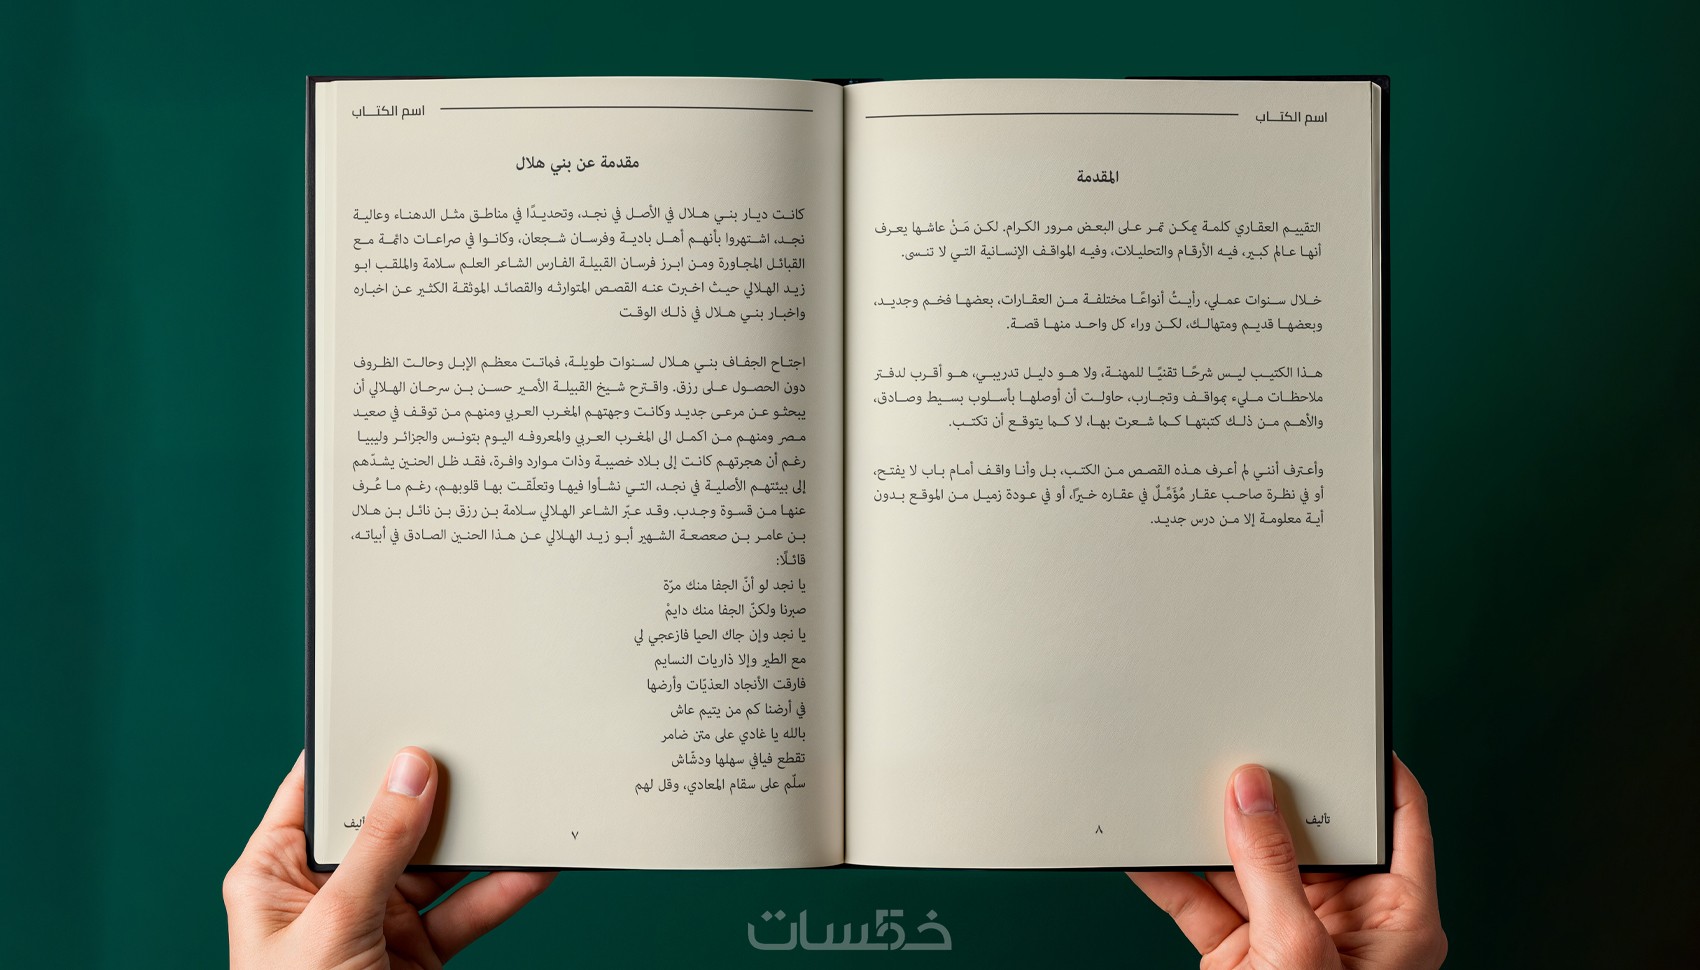 اسم الكتـــاب
المقدمة
التقييم العقاري كلمة يمكن تمر على البعض مرور الكرام. لكن مَنْ عاشها يعرف
أنها عالم كبير، فيه الأرقام والتحليلات، وفيه المواقف الإنسانية التي لا تنسى.
خلال سنوات عملي، رأيتُ أنواعًا مختلفة من العقارات، بعضها فخم وجديد،
وبعضها قديم ومتهالك، لكن وراء كل واحد منها قصة.
هذا الكتيب ليس شرحًا تقنيًا للمهنة، ولا هو دليل تدريبي، هو أقرب لدفتر
ملاحظات مليء بمواقف وتجارب، حاولت أن أوصلها بأسلوب بسيط وصادق،
والأهم من ذلك كتبتها كما شعرت بها، لا كما يتوقع أن تكتب.
وأعترف أنني لم أعرف هذه القصص من الكتب، بل وأنا واقف أمام باب لا يفتح،
أو في نظرة صاحب عقار مُؤَمِّلٌ في عقاره خيرًا، أو في عودة زميل من الموقع بدون
أية معلومة إلا من درس جديد.
تأليف
٨
اسم الكتـــاب
مقدمة عن بني هلال
كانت ديار بني هلال في الأصل في نجد، وتحديدًا في مناطق مثل الدهناء وعالية
نجد، اشتهروا بأنهم أهل بادية وفرسان شجعان، وكانوا في صراعات دائمة مع
القبائل المجاورة ومن ابرز فرسان القبيلة الفارس الشاعر العلم سلامة والملقب ابو
زيد الهلالي حيث اخبرت عنه القصص المتوارثه والقصائد الموثقة الكثير عن اخباره
واخبار بني هلال في ذلك الوقت
اجتاح الجفاف بني هلال لسنوات طويلة، فماتت معظم الإبل وحالت الظروف
دون الحصول على رزق. واقترح شيخ القبيلة الأمير حسن بن سرحان الهلالي أن
يبحثو عن مرعى جديد وكانت وجهتهم المغرب العربي ومنهم من توقف في صعيد
مصر ومنهم من اكمل الى المغرب العربي والمعروفه اليوم بتونس والجزائر وليبيا
رغم أن هجرتهم كانت إلى بلاد خصيبة وذات موارد وافرة، فقد ظل الحنين يشدّهم
إلى بيئتهم الأصلية في نجد، التي نشأوا فيها وتعلّقت بها قلوبهم، رغم ما عُرف
عنها من قسوة وجدب. وقد عبّر الشاعر الهلالي سلامة بن رزق بن نائل بن هلال
بن عامر بن صعصعة الشهير أبو زيد الهلالي عن هذا الحنين الصادق في أبياته،
قائلًا:
يا نجد لو أنّ الجفا منك مرّة
صبرنا ولكنّ الجفا منك دايمْ
يا نجد وإن جاك الحيا فازعجي لي
مع الطير وإلا ذاريات النسايم
فارقت الأنجاد العذيّات وأرضها
في أرضنا كم من يتيم عاش
بالله يا غادي على متن ضامر
تقطع فيافي سهلها ودشّاش
سلّم على سقام المعادي، وقل لهم
٧
خمسات